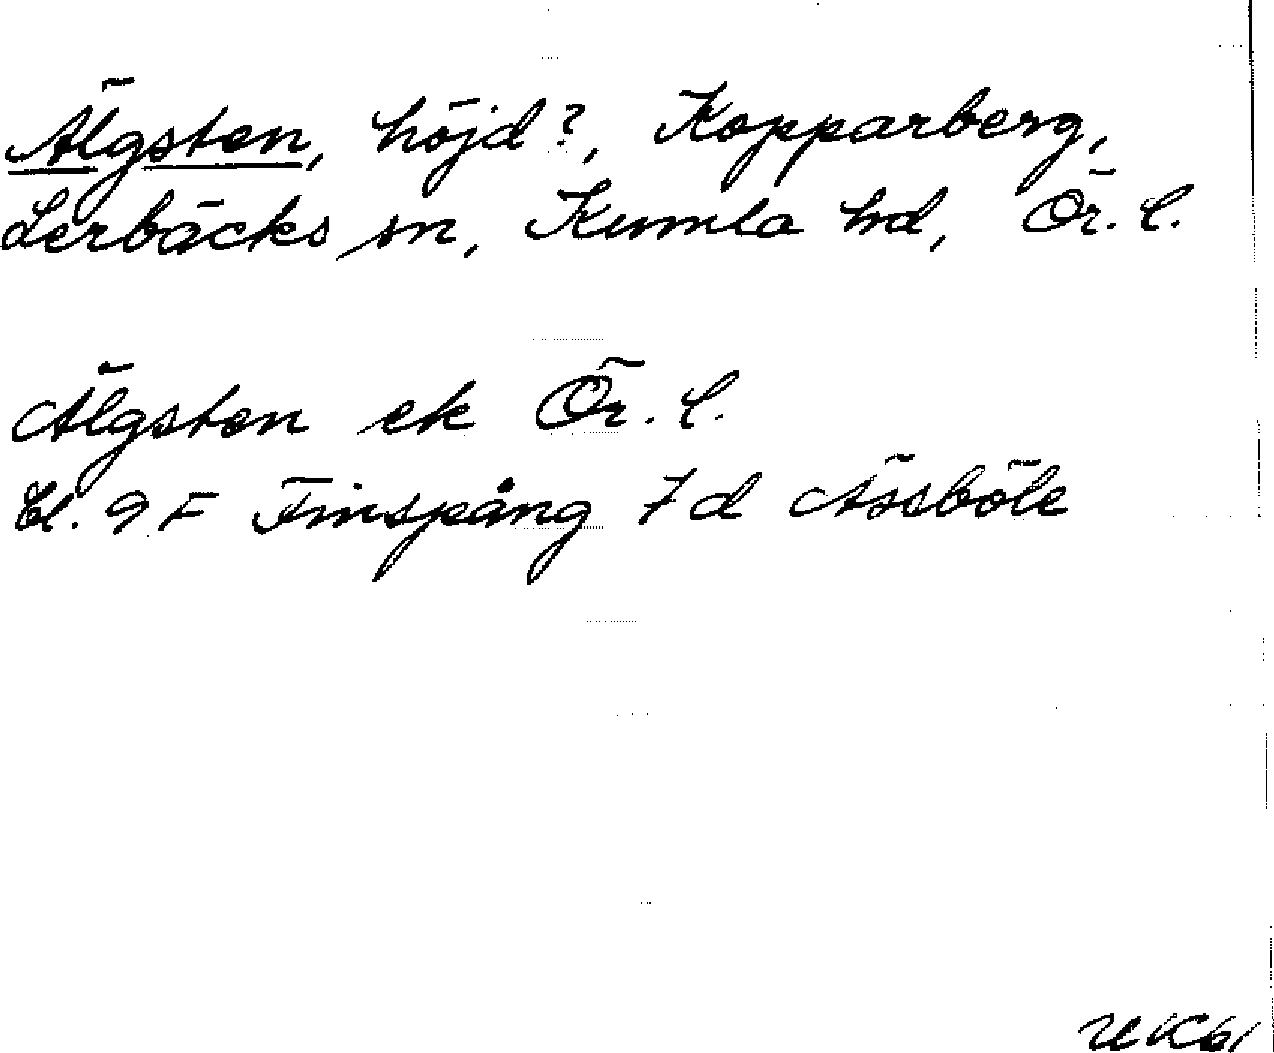 Älgsten, höjd?, Kopparberg,
Lerbäcks sn, Kumla hd, Ör. l.
Älgsten ek Ör. l.
bl. 9 F Finspång 7 d Åsböle
UK61